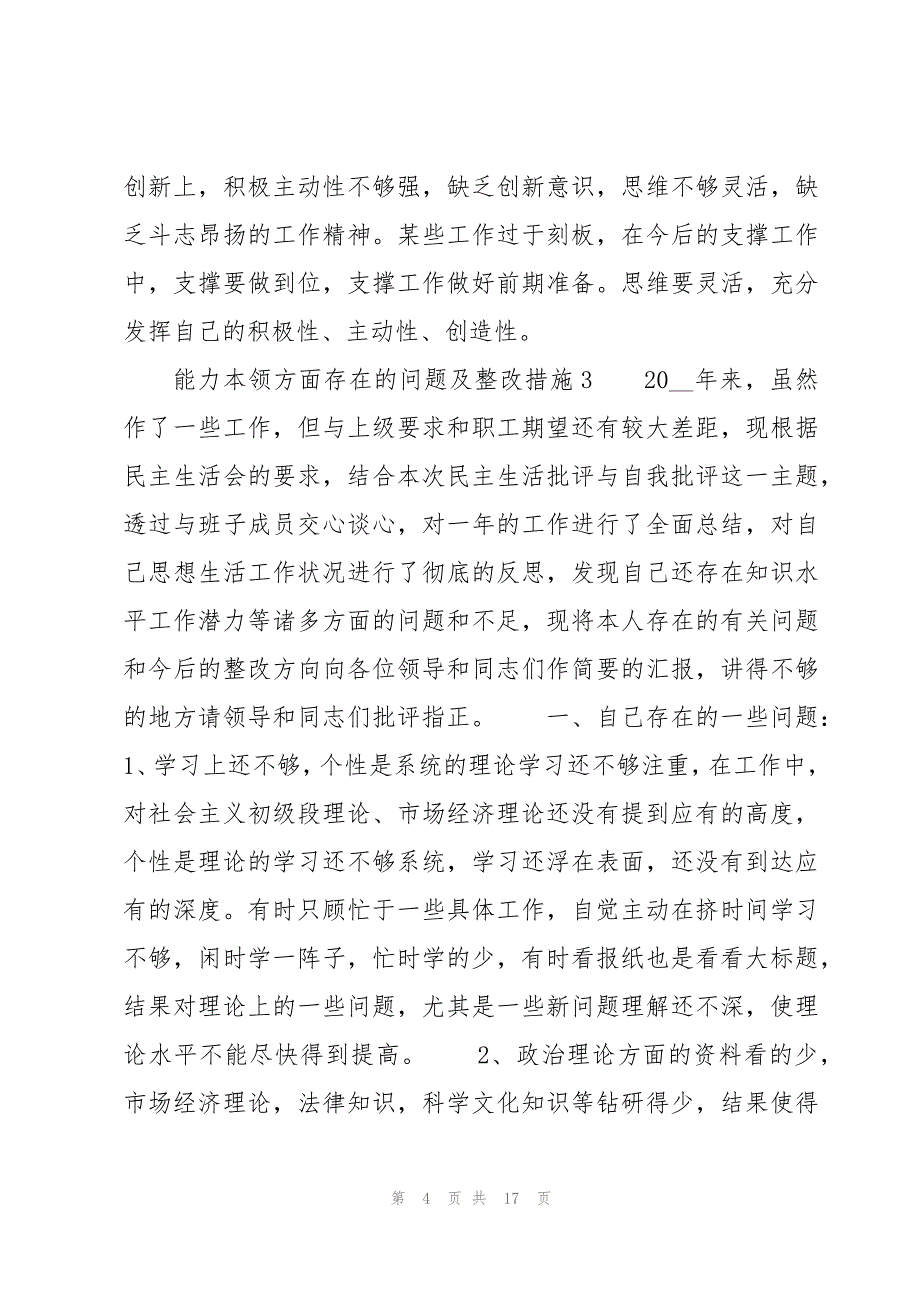 创新上，积极主动性不够强，缺乏创新意识，思维不够灵活，缺
乏斗志昂扬的工作精神。某些工作过于刻板，在今后的支撑工作
中，支撑要做到位，支撑工作做好前期准备。思维要灵活，充分
发挥自己的积极性、主动性、创造性。
能力本领方面存在的问题及整改措施 3 20__年来，虽然
作了一些工作，但与上级要求和职工期望还有较大差距，现根据
民主生活会的要求，结合本次民主生活批评与自我批评这一主题，
透过与班子成员交心谈心，对一年的工作进行了全面总结，对自
己思想生活工作状况进行了彻底的反思，发现自己还存在知识水
平工作潜力等诸多方面的问题和不足，现将本人存在的有关问题
和今后的整改方向向各位领导和同志们作简要的汇报，讲得不够
的地方请领导和同志们批评指正。 一、自己存在的一些问题：
1、学习上还不够，个性是系统的理论学习还不够注重，在工作中，
对社会主义初级段理论、市场经济理论还没有提到应有的高度，
个性是理论的学习还不够系统，学习还浮在表面，还没有到达应
有的深度。有时只顾忙于一些具体工作，自觉主动在挤时间学习
不够，闲时学一阵子，忙时学的少，有时看报纸也是看看大标题，
结果对理论上的一些问题，尤其是一些新问题理解还不深，使理
论水平不能尽快得到提高。 2、政治理论方面的资料看的少，
市场经济理论，法律知识，科学文化知识等钻研得少，结果使得
第 4 页 共 17 页